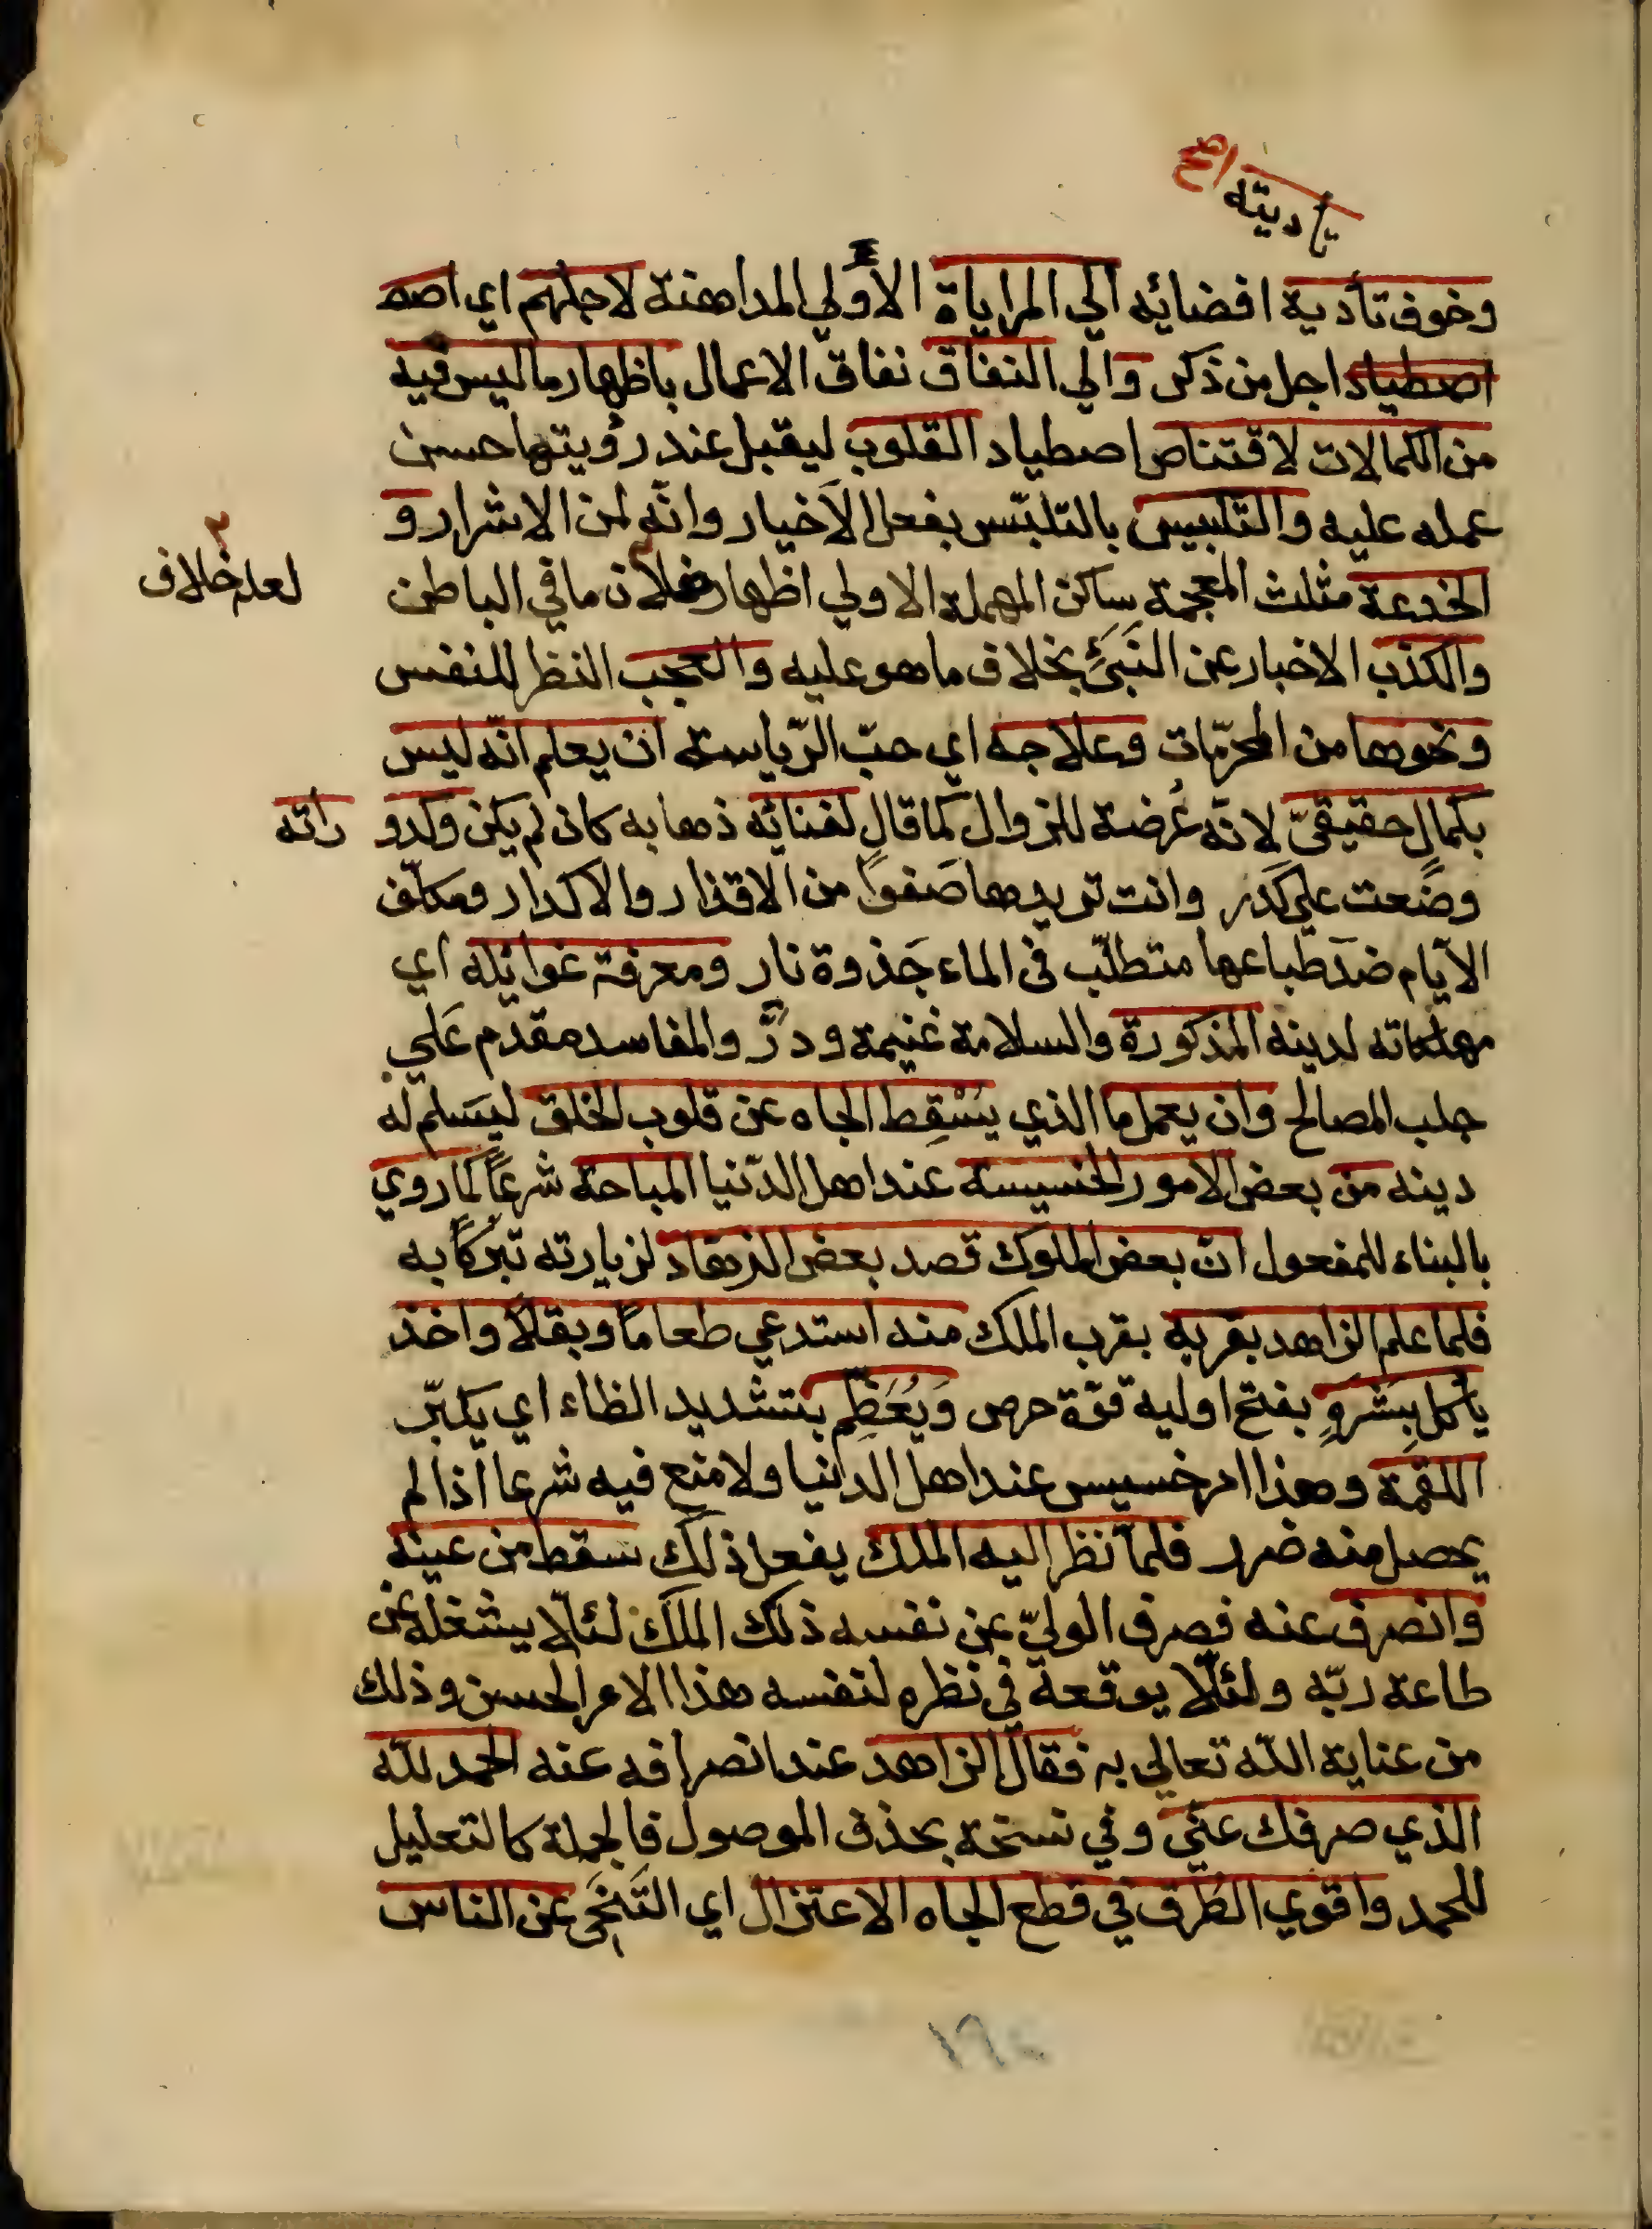 تأديته اصح
وخوف تأدية افضائه الي المراياة الأولي المداهنة لاجلهم اي
اصطياد اجل من ذكر والي النفاق نفاق الاعمال باظهار ما ليس فيه
من الكمالات لاقتناص اصطياد القلوب ليقبل عند رؤيتها حسن
عمله عليه والتلبيس بالتلبّس بفعل الاخيار وانّه لمن الاشرار و
الخدعة مثلث المعجمة ساكن المهملة الاولي اظهار ما في الباطن
لعله خلاف
والكذب الاخبار عن بخلاف ما هو عليه والعجب النظر للنفس
ونحوها من المحرّمات وعلاجه اي حبّ الرّياسة ان يعلم انّه ليس
بكمال حقيقيّ لانّه عُرضة للزوال كما قال لفنائه ذهابه كان لم يكن وكدو
راته
وضعت علي كدر وانت تريدها صَفواً من الاقذار والاكدار ومكلّف
الايّام ضدّ طباعها متطلّب في الماء جَذوة نار ومعرفة غوائله اي
مهلكاته لدينه المذكورة والسلامة غنيمة ودرّ والمفاسد مقدم عَلي
جلب المصالح وان يعمل ما الذي يُسْقِط الجاه عن قلوب الخلق ليَسلم له
دينه من بعض الامور الخسيسة عند اهل الدّنيا المباحة شرعاً كما روي
بالبناء للمفعول ان بعض الملوك قصد بعض الزهّاد لزيارته تبرّكاً به
فلما علم الزاهد بقربه بقرب الملك منه استدعي طعاماً وبقلاً واخذ
يأكل بِشَرَهٍ بفتح اوليه قوّة حرص وَيُعَظِّم بتشديد الظاء اي يكبّر
اللقمة وهذا امر خسيس عند اهل الدنيا ولا منع فيه شرعا اذا لم
يحصل منه ضرر فلمّا نظر اليه الملك يفعل ذلك سقط من عينه
وانصرف عنه فصرف الوليّ عن نفسه ذلك الملك لئلّا يشغله عن
طاعة ربّه ولئلّا يوقعه في نظره لنفسه هذا الامر الحسن وذلك
من عناية اللّه تعالي به فقال الزاهد عند انصرافه عنه الحمد للّه
الذي صرفك عنّي وفي نسخة بحذف الموصول فالجملة كالتعليل
للحمد واقوي الطُرق في قطع الجاه الاعتزال اي التَنَحّي عن الناس